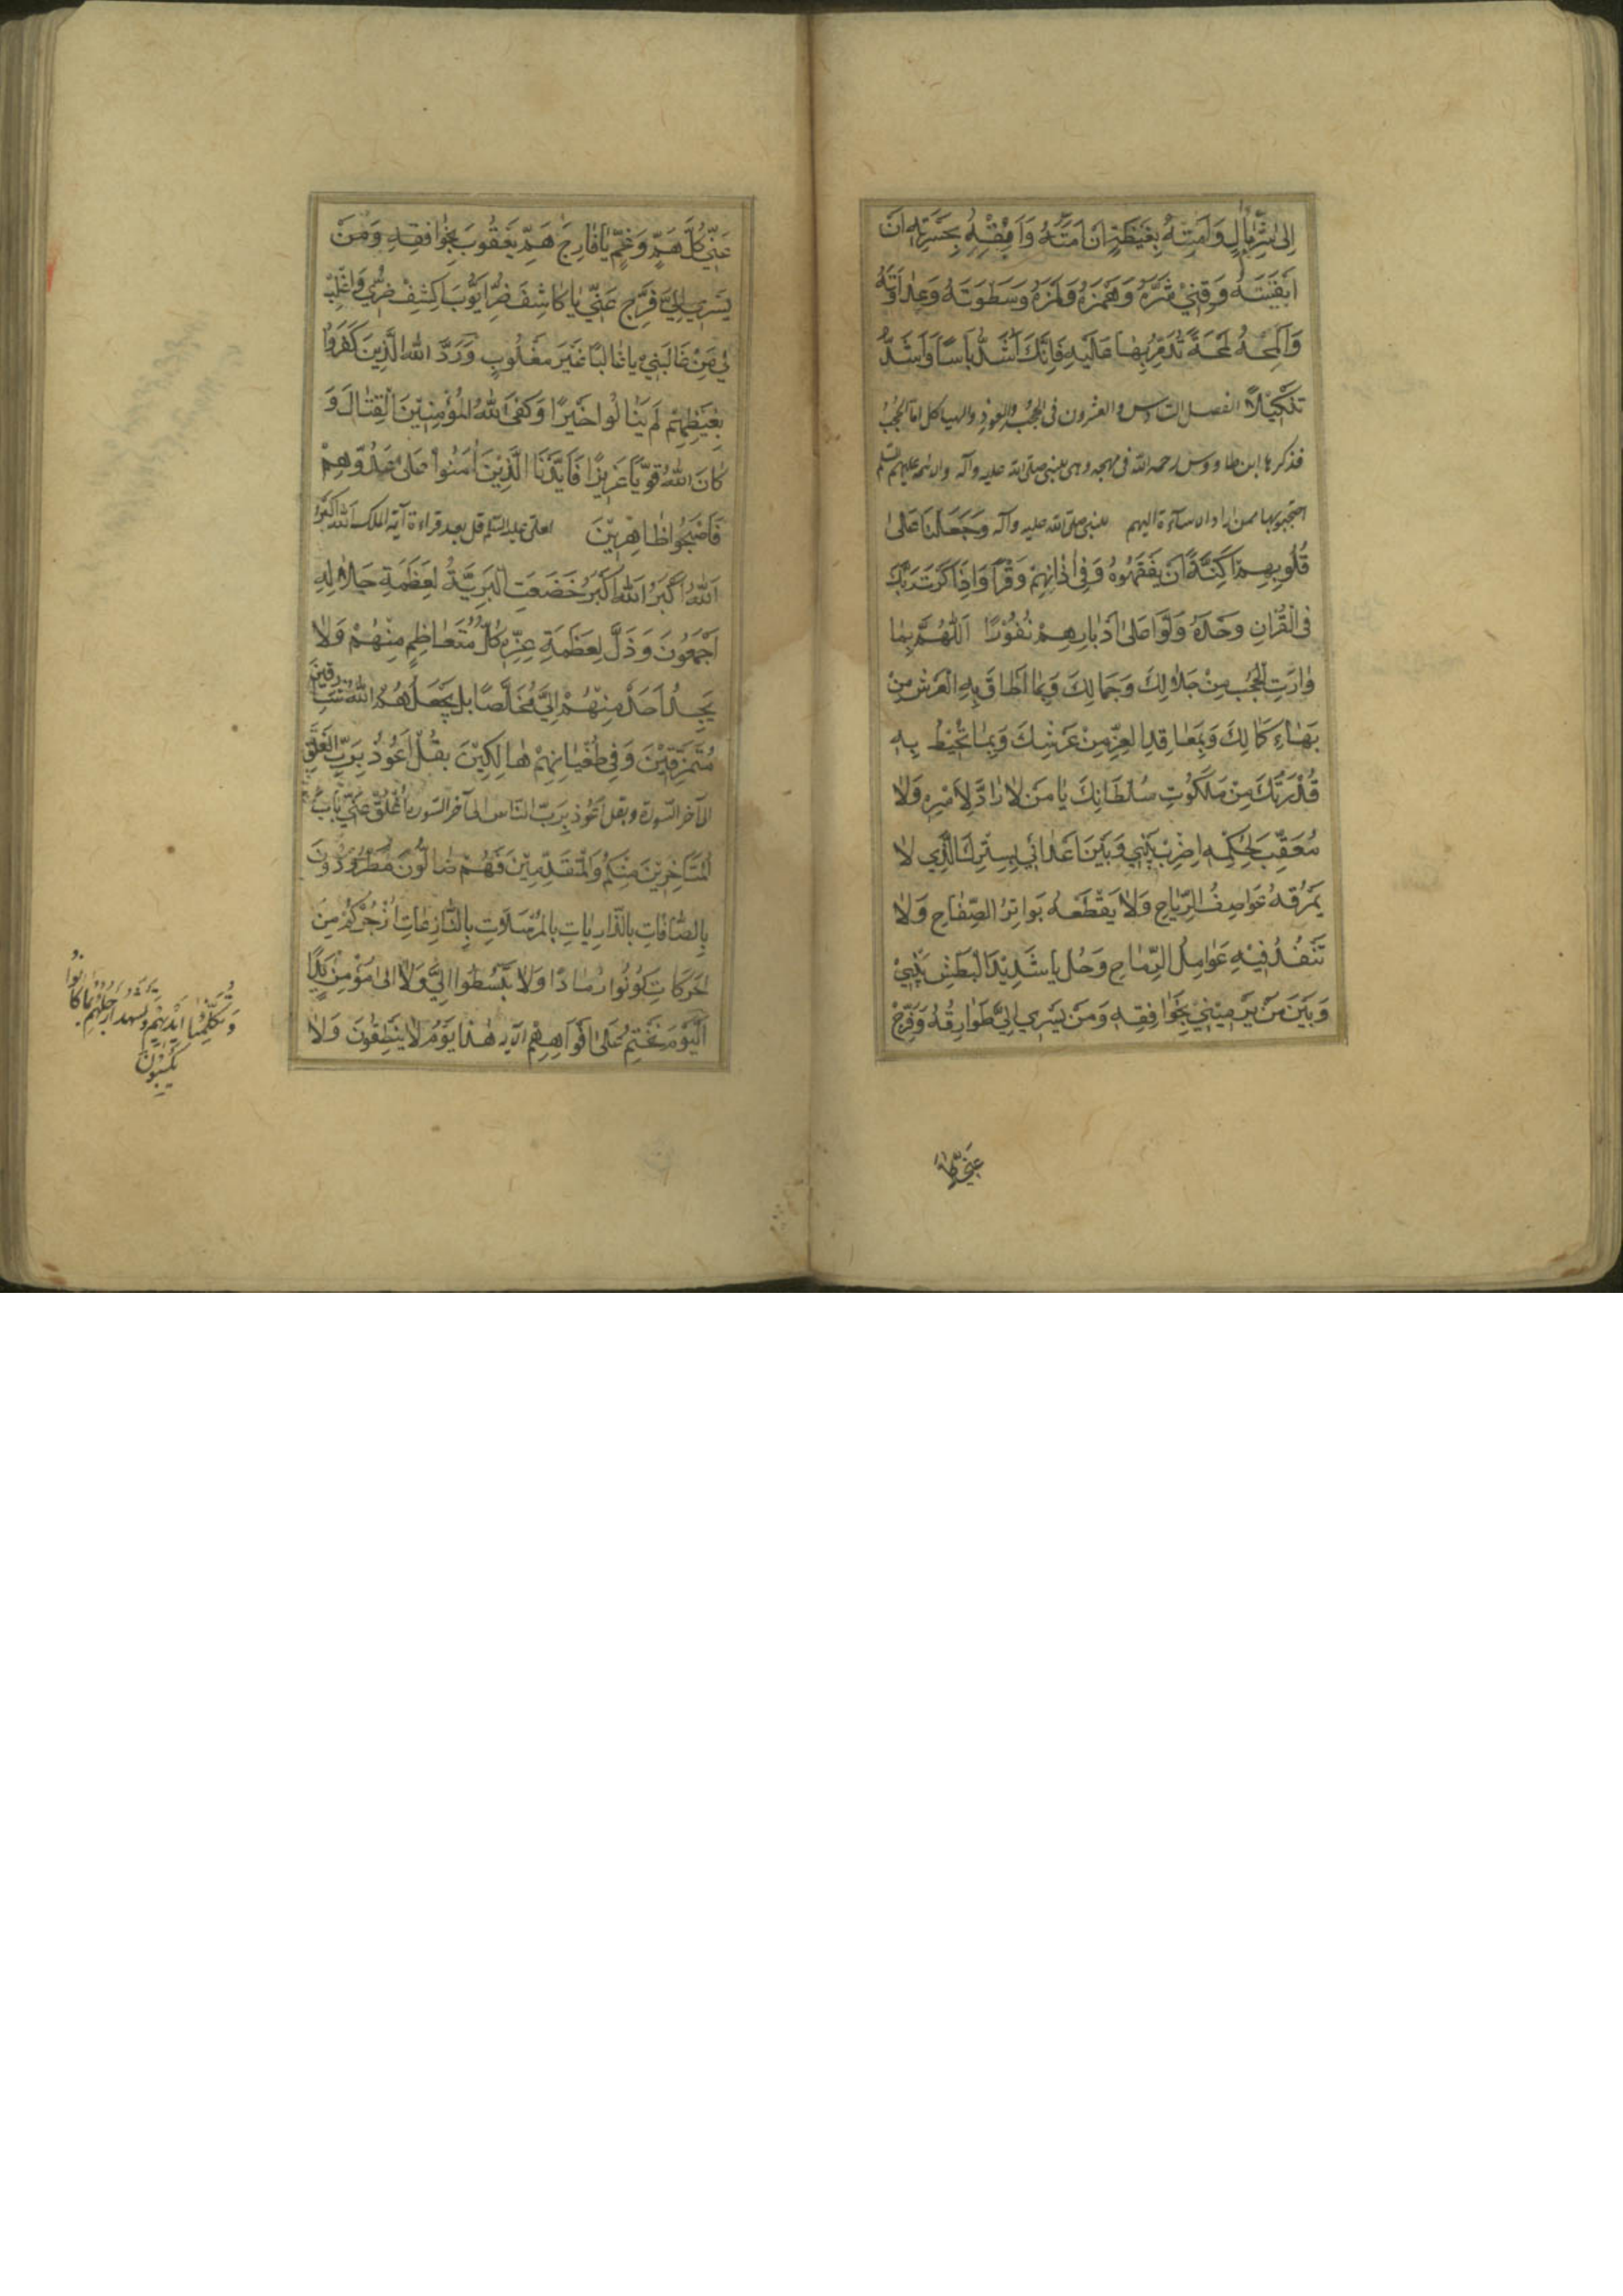 إِلَى شَرِّ مَآلٍ وَأَمِتْهُ بِغَيْظِهِ إِنْ أَمَتَّهُ وَأَبْقِهِ بِحَسْرَتِهِ إِنْ
أَبْقَيْتَهُ وَقِنِي شَرَّهُ وَهَمْزَهُ وَلَمْزَهُ وَسَطْوَتَهُ وَعَدَاوَتَهُ
وَالْمَحْهُ لَمْحَةً تُدَمِّرُ بِهَا عَلَيْهِ فَإِنَّكَ أَشَدُّ بَأْسًا وَأَشَدُّ
تَنْكِيلًا الفصل السادس والعشرون فى الحجب والعوذ والهياكل اما الحجب
فذكرها ابن طاووس رحمه الله فى مهجه وهى للنبى صلى الله عليه وآله والائمة عليهم السلم
احتجبوا بها ممن اراد الاساءة اليهم للنبى صلى الله عليه وآله وَجَعَلْنَا عَلَى
قُلُوبِهِمْ أَكِنَّةً أَنْ يَفْقَهُوهُ وَفِي آذَانِهِمْ وَقْرًا وَإِذَا ذَكَرْتَ رَبَّكَ
فِي الْقُرْآنِ وَحْدَهُ وَلَّوْا عَلَى أَدْبَارِهِمْ نُفُورًا اللَّهُمَّ بِمَا
وَارَتِ الْحُجُبُ مِنْ جَلَالِكَ وَجَمَالِكَ وَبِمَا أَطَافَ بِهِ الْعَرْشُ مِنْ
بَهَاءِ كَمَالِكَ وَبِمَعَاقِدِ الْعِزِّ مِنْ عَرْشِكَ وَبِمَا تُحِيطُ بِهِ
قُدْرَتُكَ مِنْ مَلَكُوتِ سُلْطَانِكَ يَا مَنْ لَا رَادَّ لِأَمْرِهِ وَلَا
مُعَقِّبَ لِحُكْمِهِ اضْرِبْ بَيْنِي وَبَيْنَ أَعْدَائِي بِسِتْرِكَ الَّذِي لَا
يَمْزُقُهُ عَوَاصِفُ الرِّيَاحِ وَلَا يَقْطَعُهُ بَوَاتِرُ الصِّفَاحِ وَلَا
تَنْفُذُ فِيهِ عَوَامِلُ الرِّمَاحِ وَحُلْ يَا شَدِيدَ الْبَطْشِ بَيْنِي
وَبَيْنَ مَنْ يَرْمِينِي بِخَوَافِقِهِ وَمَنْ يَسْرِي إِلَيَّ طَوَارِقُهُ وَفَرِّجْ
عَنِّي كُلَّ
عَنِّي كُلَّ هَمٍّ وَغَمٍّ يَا فَارِجَ هَمِّ يَعْقُوبَ بِخَوَافِقِهِ وَمَنْ
يَسْرِي إِلَيَّ فَرِّجْ عَنِّي يَا كَاشِفَ ضُرِّ أَيُّوبَ اكْشِفْ ضُرِّي وَاغْلِبْ
لِي مَنْ غَالَبَنِي يَا غَالِبًا غَيْرَ مَغْلُوبٍ وَرَدَّ اللَّهُ الَّذِينَ كَفَرُوا
بِغَيْظِهِمْ لَمْ يَنَالُوا خَيْرًا وَكَفَى اللَّهُ الْمُؤْمِنِينَ الْقِتَالَ وَ
كَانَ اللَّهُ قَوِيًّا عَزِيزًا فَأَيَّدْنَا الَّذِينَ آمَنُوا عَلَى عَدُوِّهِمْ
فَأَصْبَحُوا ظَاهِرِينَ لعلى عليه السلم قل بعد قراءة آية الملك اللَّهُ أَكْبَرُ
اللَّهُ أَكْبَرُ اللَّهُ أَكْبَرُ خَضَعَتِ الْبَرِيَّةُ لِعَظَمَةِ جَلَالِهِ
أَجْمَعُونَ وَذَلَّ لِعَظَمَةِ عِزِّهِ كُلُّ مُتَعَاظِمٍ مِنْهُمْ وَلَا
يَجِدُ أَحَدٌ مِنْهُمْ إِلَيَّ مُخَلَّصًا بَلْ يَجْعَلُهُمُ اللَّهُ
مُتَمَزِّقِينَ وَفِي طُغْيَانِهِمْ هَالِكِينَ بِقُلْ أَعُوذُ بِرَبِّ الْفَلَقِ
الى آخر السورة وبقل أعوذ برب الناس الى آخر السورة انْغَلَقَ عَنِّي بَابُ
الْمُتَأَخِّرِينَ مِنْكُمْ وَالْمُتَقَدِّمِينَ فَهُمْ ضَالُّونَ مَطْرُودُونَ
بِالصَّافَّاتِ بِالذَّارِيَاتِ بِالْمُرْسَلَاتِ بِالنَّازِعَاتِ أَزْجُرُكُمْ مِنَ
الْحَرَكَاتِ كُونُوا رَمَادًا وَلَا تَبْسُطُوا إِلَيَّ وَلَا إِلَى مُؤْمِنٍ يَدًا
الْيَوْمَ نَخْتِمُ عَلَى أَفْوَاهِهِمْ الآية هَذَا يَوْمُ لَا يَنْطِقُونَ وَلَا
وَتُكَلِّمُنَا أَيْدِيهِمْ وَتَشْهَدُ أَرْجُلُهُمْ بِمَا كَانُوا
يَكْسِبُونَ